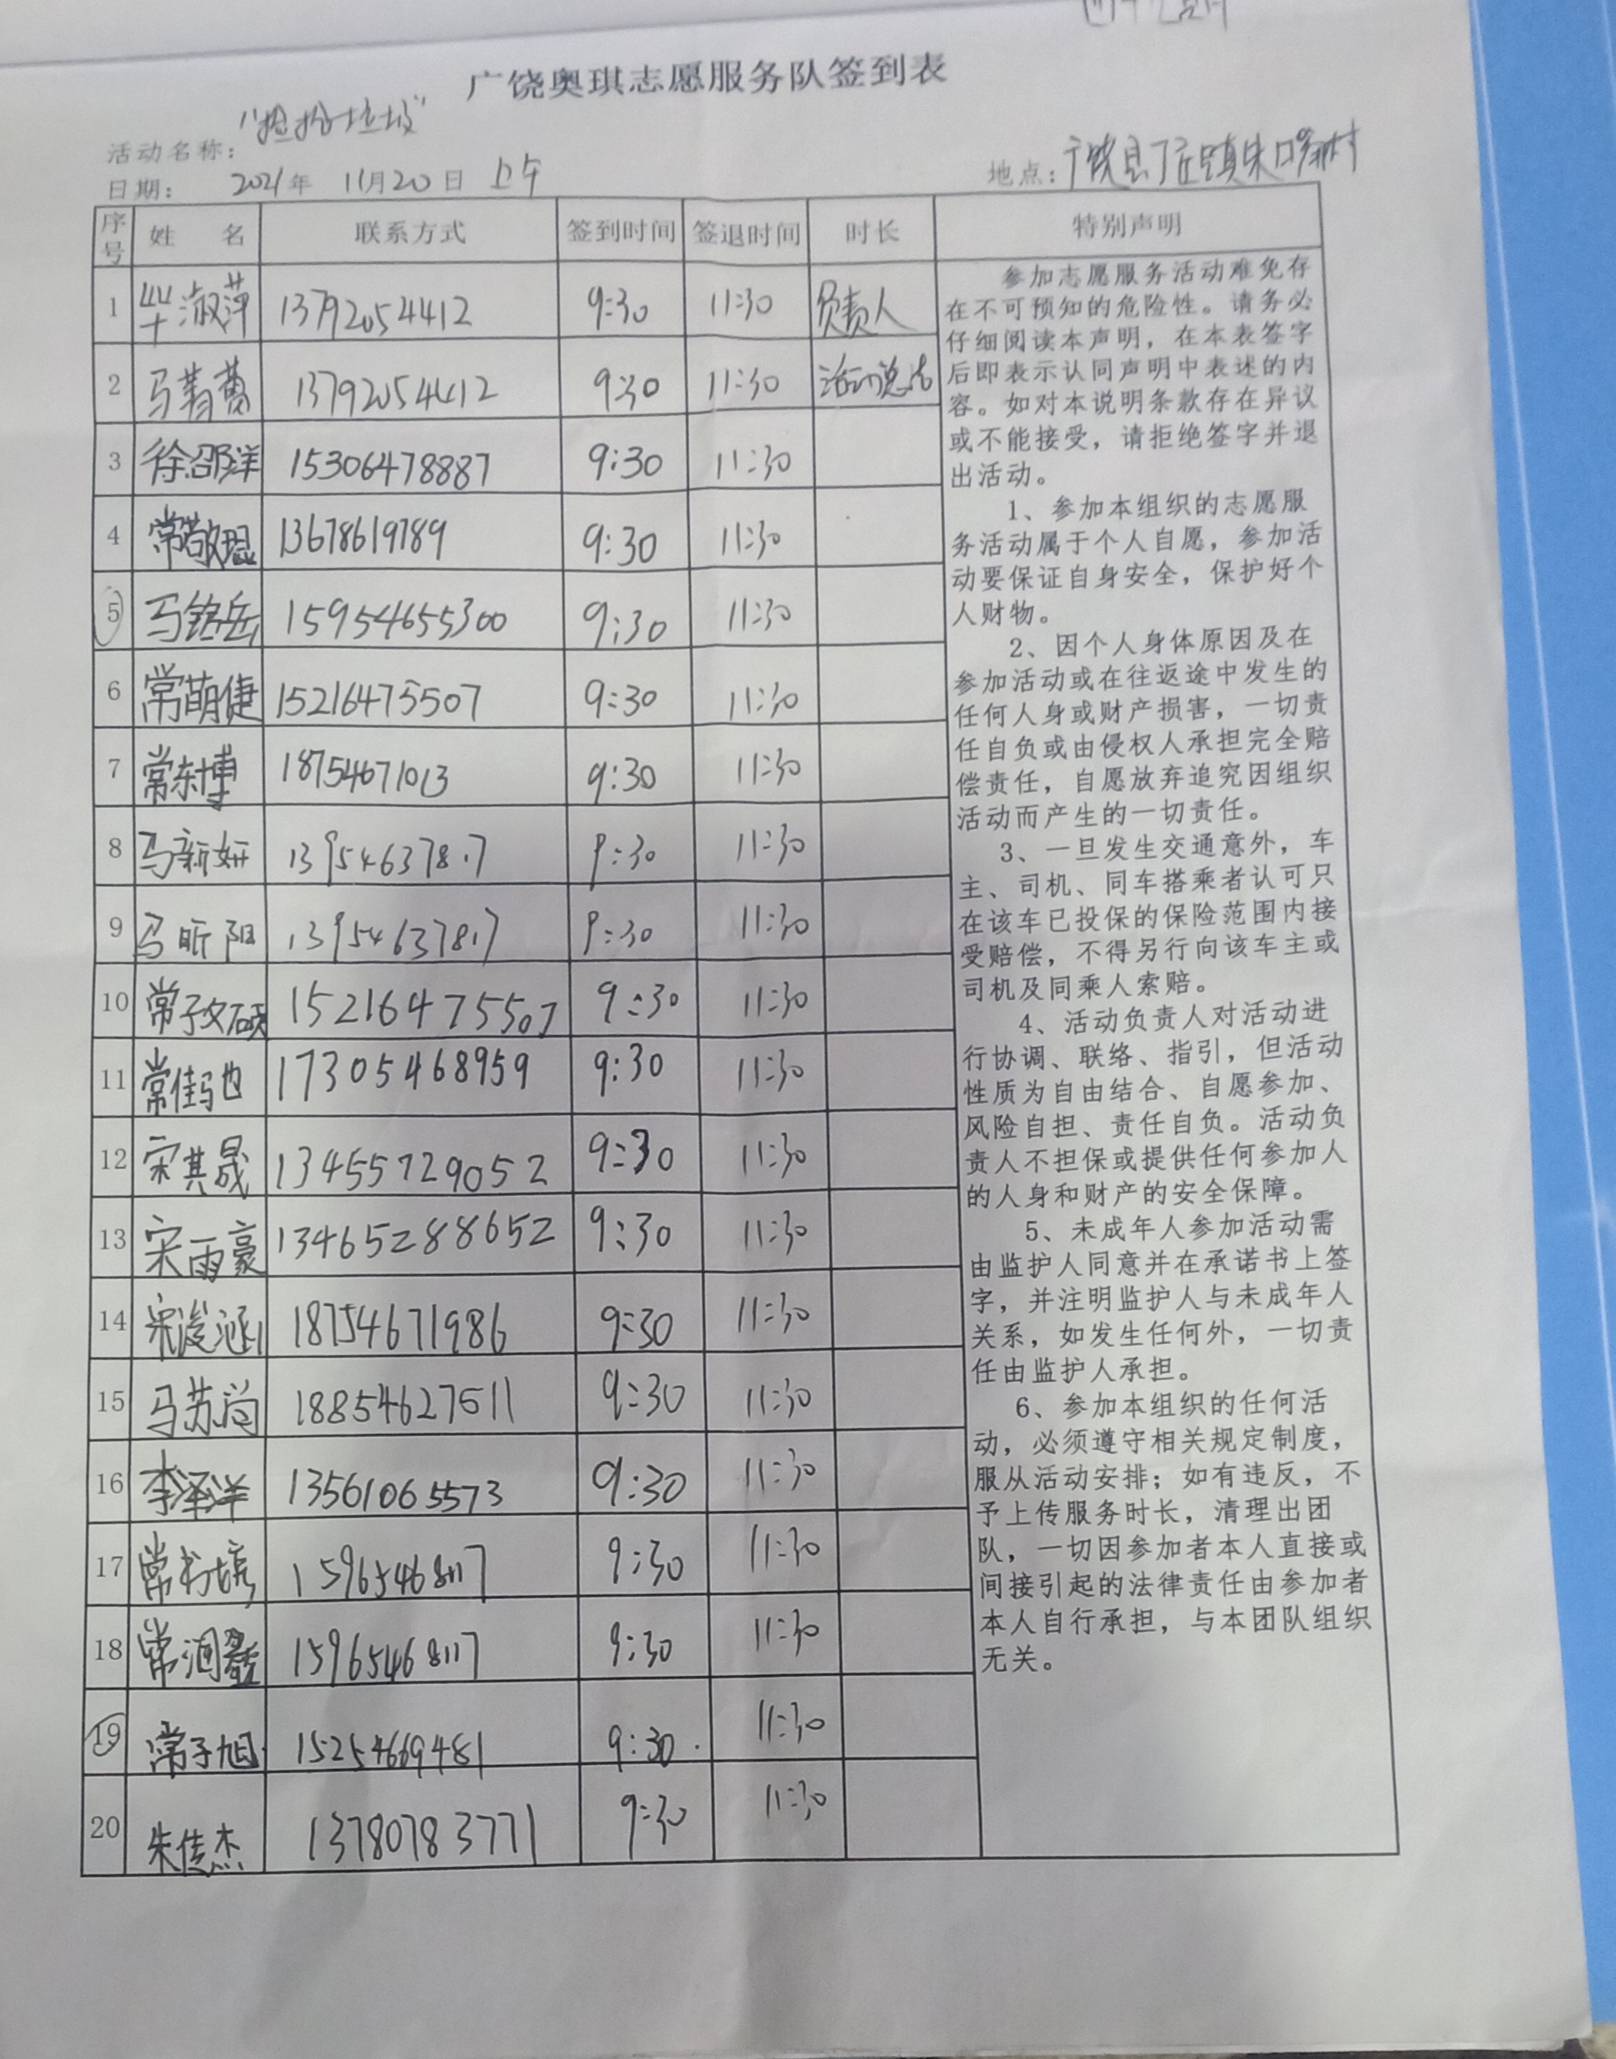 广饶奥琪志愿服务队签到表
活动名称：“捡拾垃圾”
日期： 2021年 11月20日 上午
地点：广饶县丁庄镇朱
序号 姓 名 联系方式 签到时间 签退时间 时长 特别声明
1 淑萍 13792054412 9:30 11:30 负责人
2 马菁 13792054412 9:30 11:30 活动总结
3 徐邵洋 15306478887 9:30 11:30
4 常敬琨 13678619789 9:30 11:30
5 马铭岳 15954655300 9:30 11:30
6 常萌倢 15216475507 9:30 11:30
7 常东博 18754671013 9:30 11:30
8 马新妍 13954637817 9:30 11:30
9 马昕阳 13954637817 9:30 11:30
10 常子文硕 15216475507 9:30 11:30
11 常佳驰 17305468959 9:30 11:30
12 宋其晟 13455729052 9:30 11:30
13 宋雨豪 13465288652 9:30 11:30
14 宋浚涵 18754671986 9:30 11:30
15 马苏尚 18854627511 9:30 11:30
16 李泽洋 13561065573 9:30 11:30
17 常 15965468117 9:30 11:30
18 常润鑫 15965468117 9:30 11:30
19 常子旭 15254669481 9:30 11:30
20 朱传杰 13780783771 9:30 11:30
参加志愿服务活动难免存
在不可预知的危险性。请务必
仔细阅读本声明，在本表签字
后即表示认同声明中表述的内
容。如对本说明条款存在异议
或不能接受，请拒绝签字并退
出活动。
1、参加本组织的志愿服
务活动属于个人自愿，参加活
动要保证自身安全，保护好个
人财物。
2、因个人身体原因及在
参加活动或在往返途中发生的
任何人身或财产损害，一切责
任自负或由侵权人承担完全赔
偿责任，自愿放弃追究因组织
活动而产生的一切责任。
3、一旦发生交通意外，车
主、司机、同车搭乘者认可只
在该车已投保的保险范围内接
受赔偿，不得另行向该车主或
司机及同乘人索赔。
4、活动负责人对活动进
行协调、联络、指引，但活动
性质为自由结合、自愿参加、
风险自担、责任自负。活动负
责人不担保或提供任何参加人
的人身和财产的安全保障。
5、未成年人参加活动需
由监护人同意并在承诺书上签
字，并注明监护人与未成年人
关系，如发生任何外，一切责
任由监护人承担。
6、参加本组织的任何活
动，必须遵守相关规定制度，
服从活动安排；如有违反，不
予上传服务时长，清理出团
队，一切因参加者本人直接或
间接引起的法律责任由参加者
本人自行承担，与本团队组织
无关。